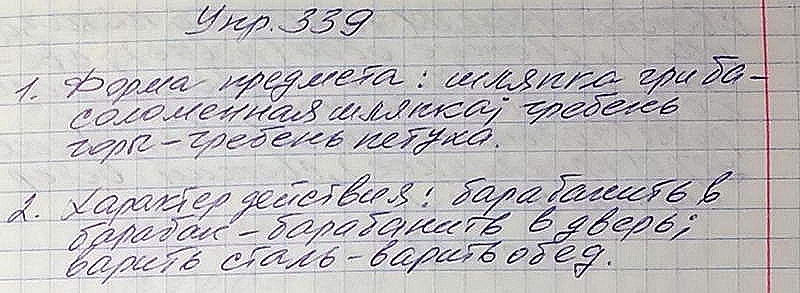 Упр. 339
1. Форма предмета: шляпка гриба-
соломенная шляпка; гребень
горы-гребень петуха.
2. Характер действия: барабанить в
барабан-барабанить в дверь;
варить сталь-варить обед.